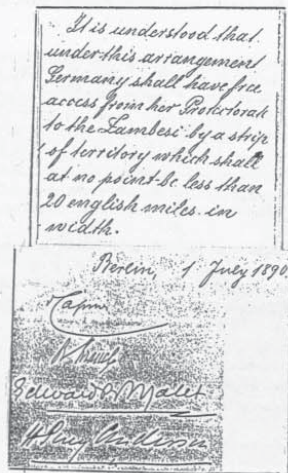 It is understood that
under this arrangement
Germany shall have free
access from her Protectorate
to the Zambesi by a strip
of territory which shall
at no point be less than
20 english miles in
width.
Berlin, 1 July 1890.
Edward B Malet
H Percy Anderson